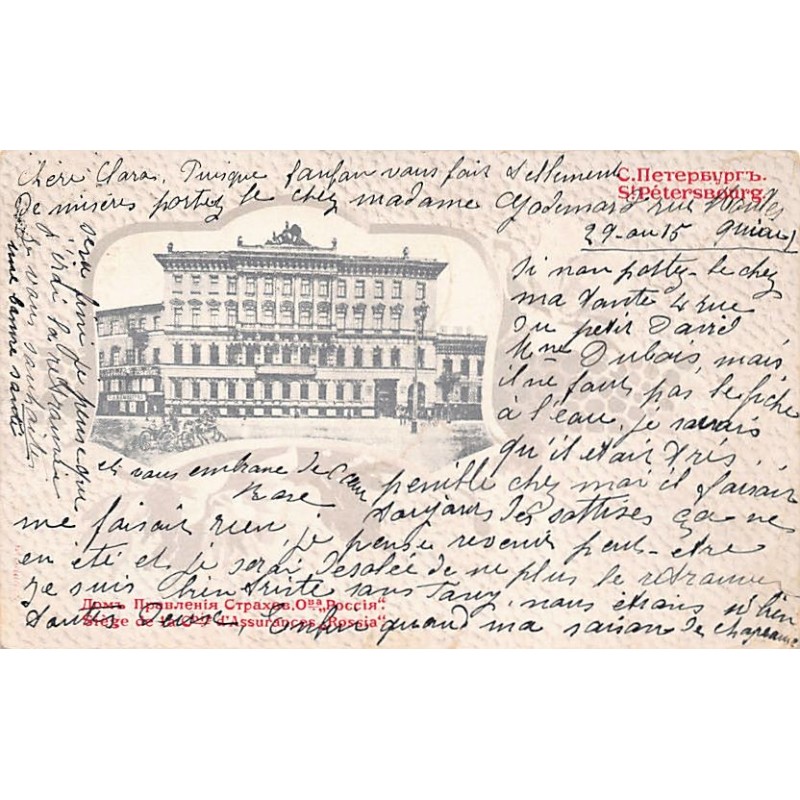 С.Петербургъ.
St Pétersbourg.
Chère Clara, Puisque fanfan vous fait tellement
de misères portez le chez madame rue
29 au 15
Si non portez-le chez
ma tante 4 rue
du petit David
Mme Dubois, mais
il ne faut pas le fiche
à l'eau, je savais
qu'il était très
penible chez moi il faisait
toujours des sottises ça ne
me faisait rien, je pense revenir peut-être
en été et je serai désolée de ne plus le retrouver
je suis bien triste sans nous étions si bien
toutes deux, Enfin quand ma saison de chapeaux
sera fini je pense que
j'irai la retrouver
Je vous souhaite
une bonne santé
et vous embrasse de cœur
Rose
Домъ Правленія Страхов. Общ.а „Россія".
Siège de la Cie d'Assurances „Rossia"